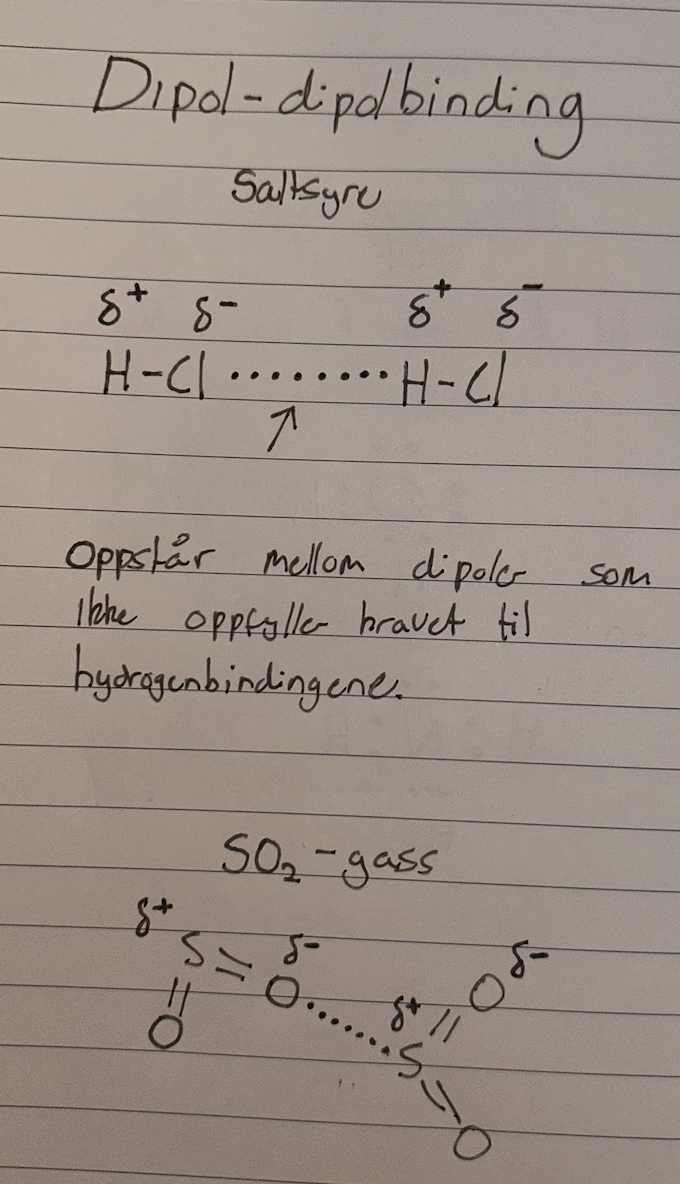 Dipol-dipolbinding
Saltsyre
δ+ δ- δ+ δ-
H-Cl ········· H-Cl
↗
Oppstår mellom dipoler som
ikke oppfyller kravet til
hydrogenbindingene.
SO₂-gass
δ+
S = O δ- δ-
|| δ+ O
O ······· S =
= O